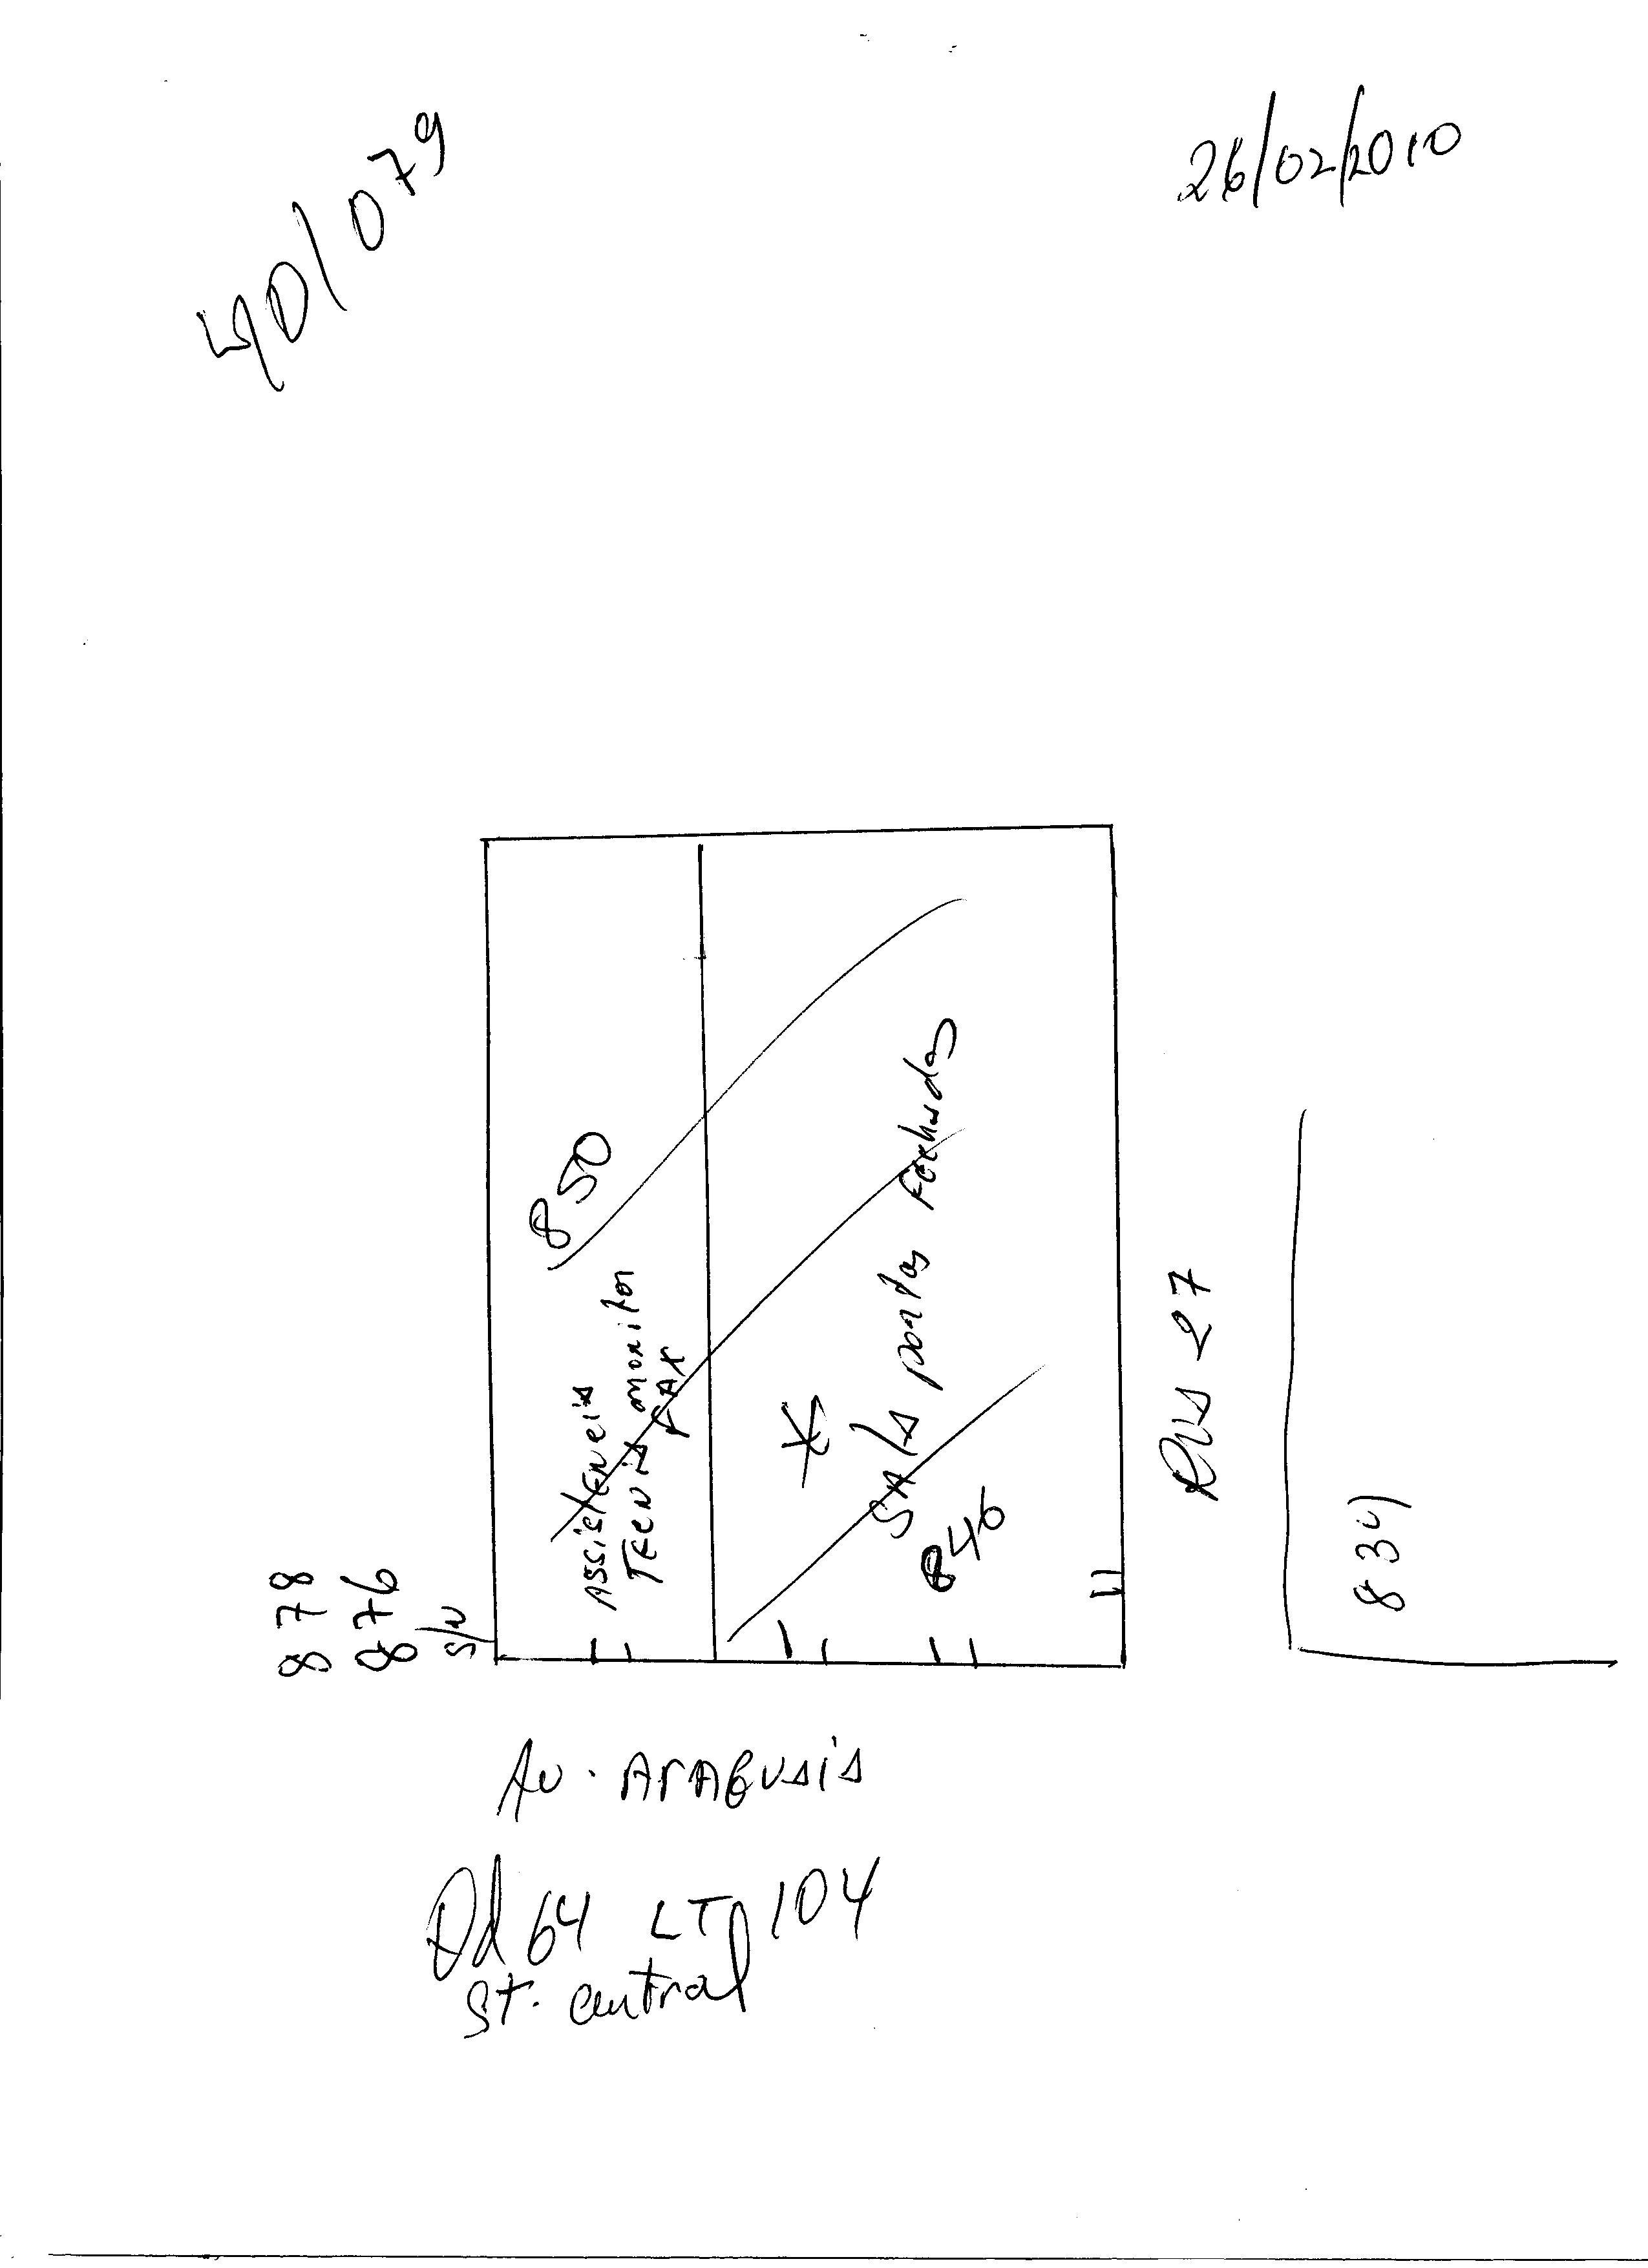 40/079
26/02/2010
850
Assistencia
Tecnia monitor
FAX
*
SALA portas Fechadas
846
878
876
S/N
Rua 27
834
Av. Araguaia
Qd 64 LT 104
St. central